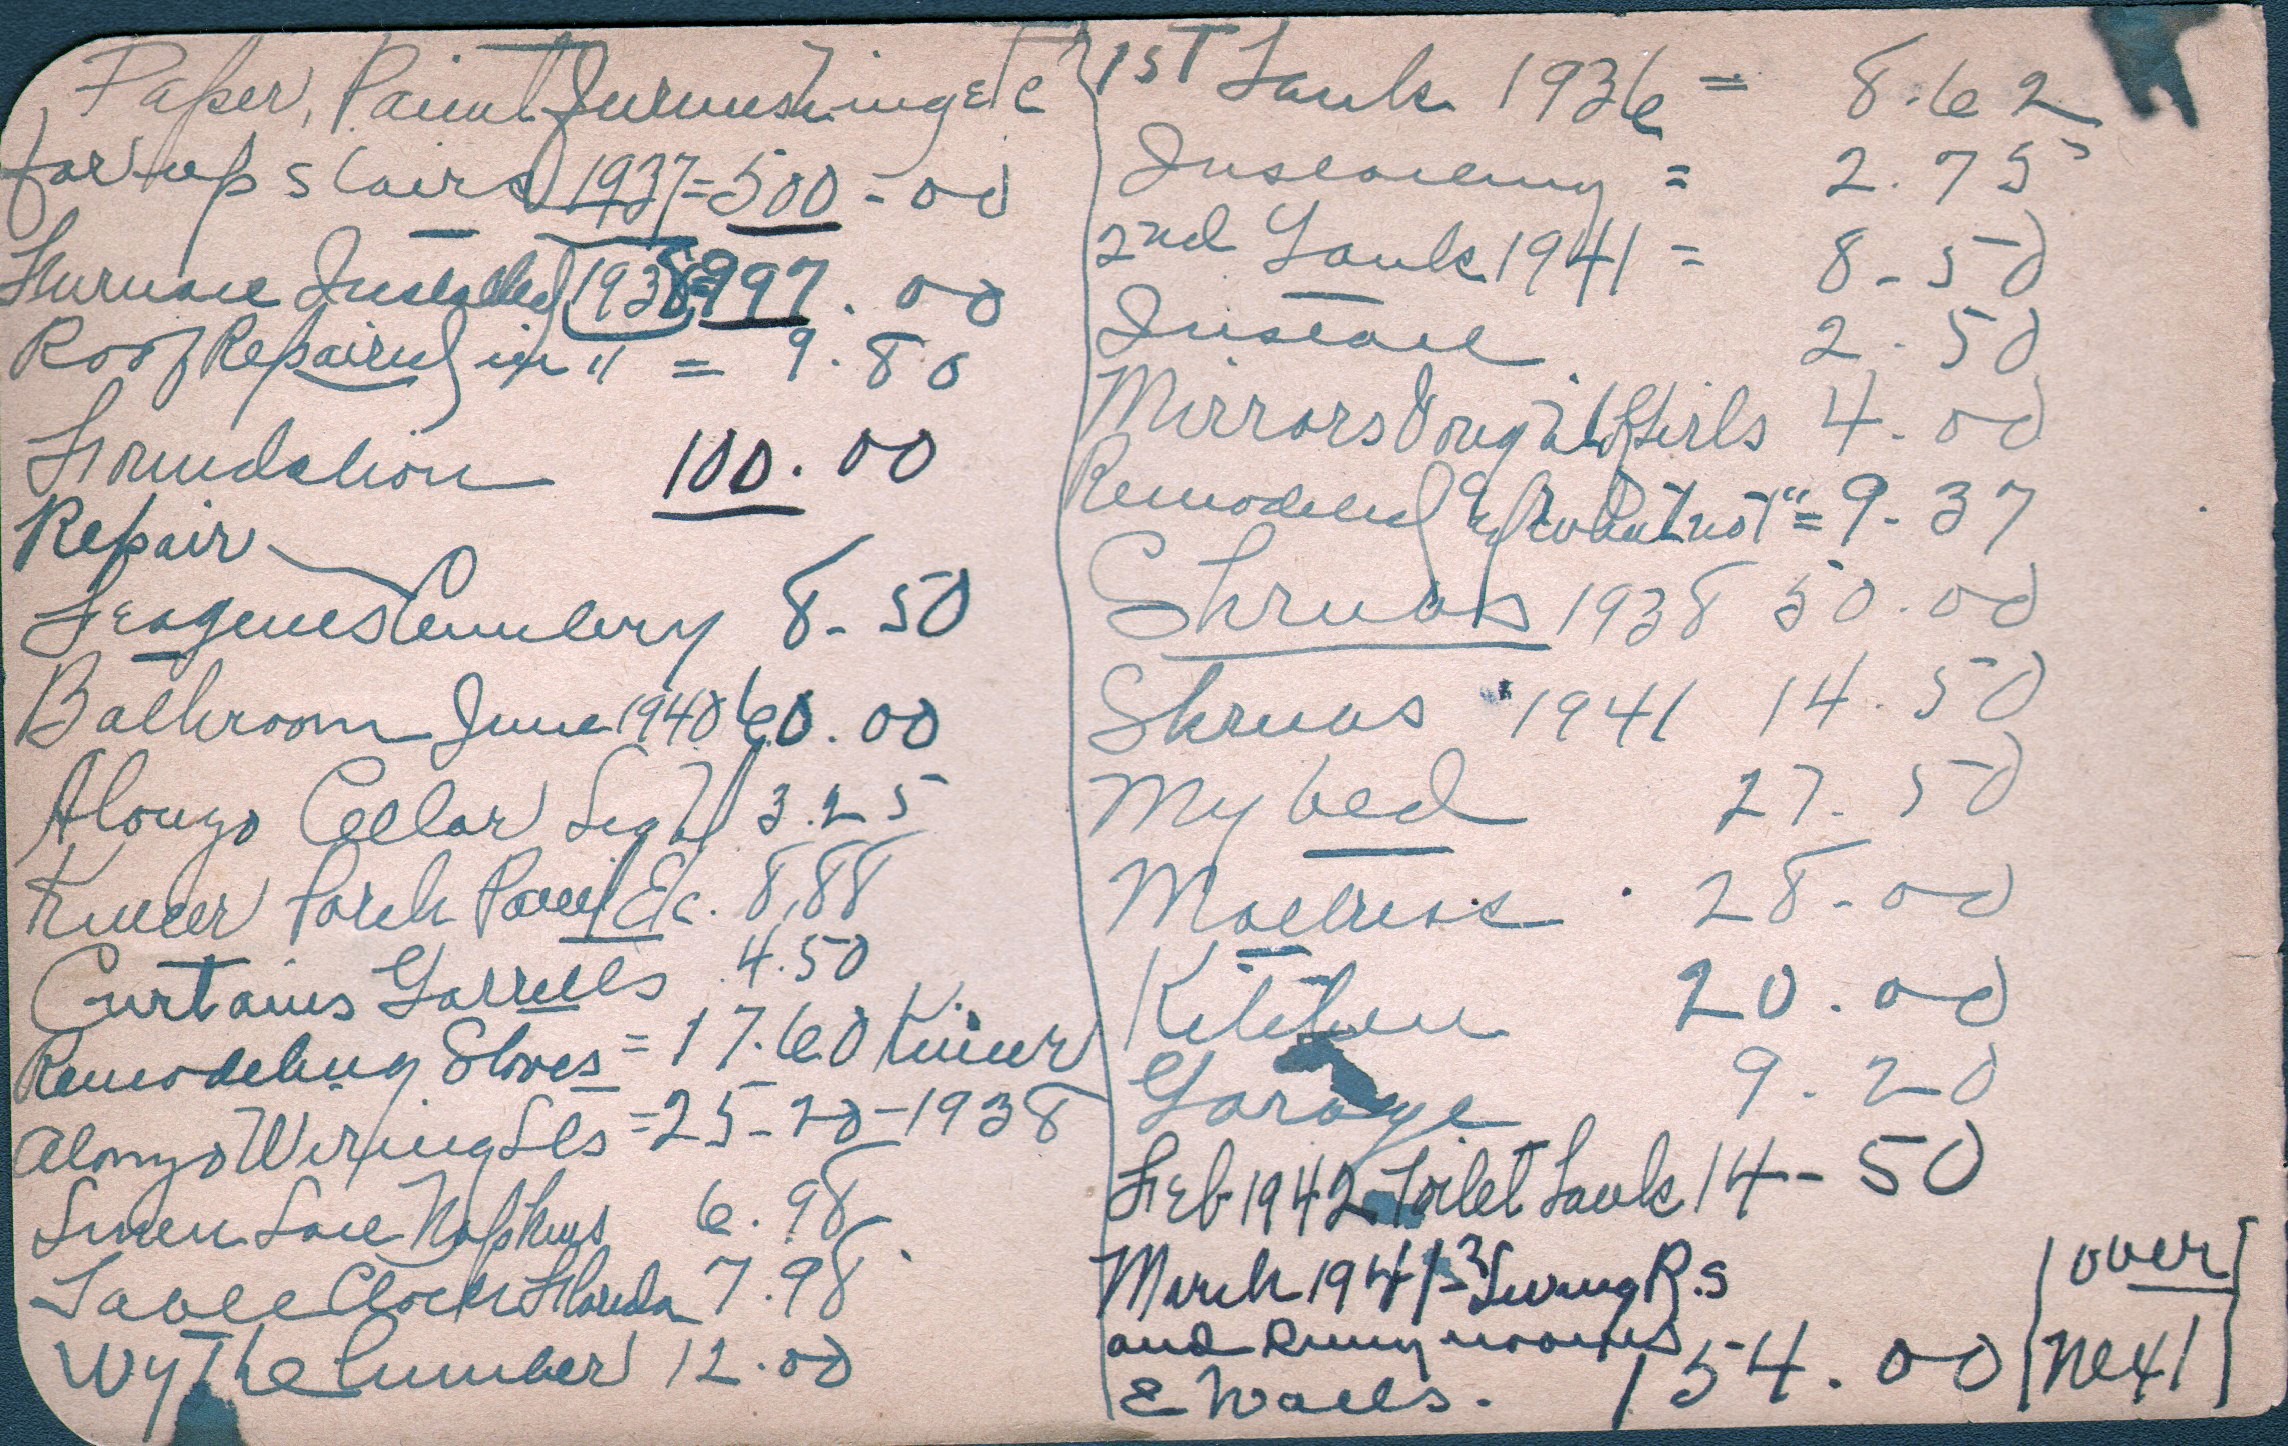 Paper, Paint Furnishing etc
for up stairs 1937=500-00
Furnace Installed 1938=997.00
Roof Repaired in " = 9.80
Foundation 100.00
Repair
Cemetery 8-50
Bathroom June 1940 60.00
Alonzo Cellar Light 3.25
Porch Paint Etc. 8.88
Curtains 4.50
Remodeling Stoves = 17.60
Alonzo Wiring Lts =25-20-1938
Linen Lace Napkins 6.98
Table Clock Florida 7.98
Wythe Lumber 12.00
1ST Tank 1936 = 8.62
Installing = 2.75
2nd Tank 1941 = 8-50
Install 2.50
Mirrors Girls 4-00
Remodeled "whatnot" = 9-37
Shrubs 1938 50.00
Shrubs 1941 14.50
My bed 27-50
Mattress 28-00
Kitchen 20.00
Garage 9.20
Feb 1942 Toilet Tank 14-50
March 1941 3 Living R.s
and Dining rooms
& Walls. 154.00
over
Next